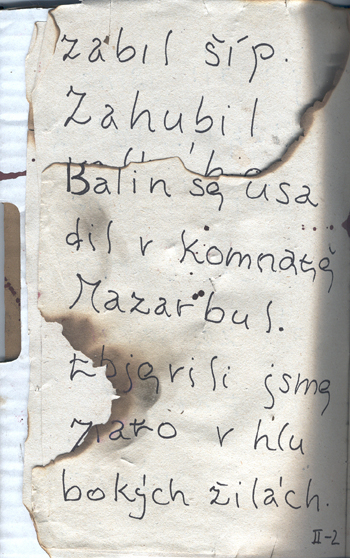 zabil šíp.
Zahubil
Balin se usa
dil v komnatě
Mazarbul.
zbjevili jsme
zlato v hlu
bokých žilách.
II-2